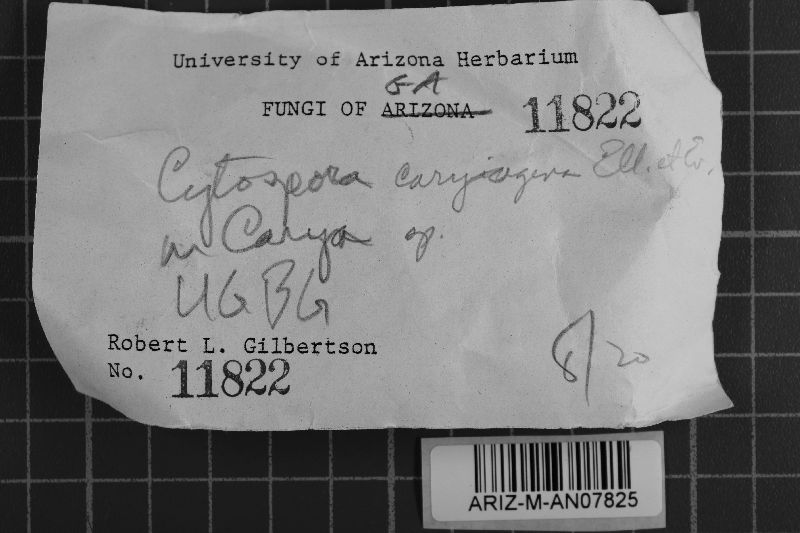 University of Arizona Herbarium
GA
FUNGI OF ARIZONA 11822
Cytospora caryigena Ell. et Ev.
on Carya sp.
UGBG
Robert L. Gilbertson
No. 11822
8/20
ARIZ-M-AN07825